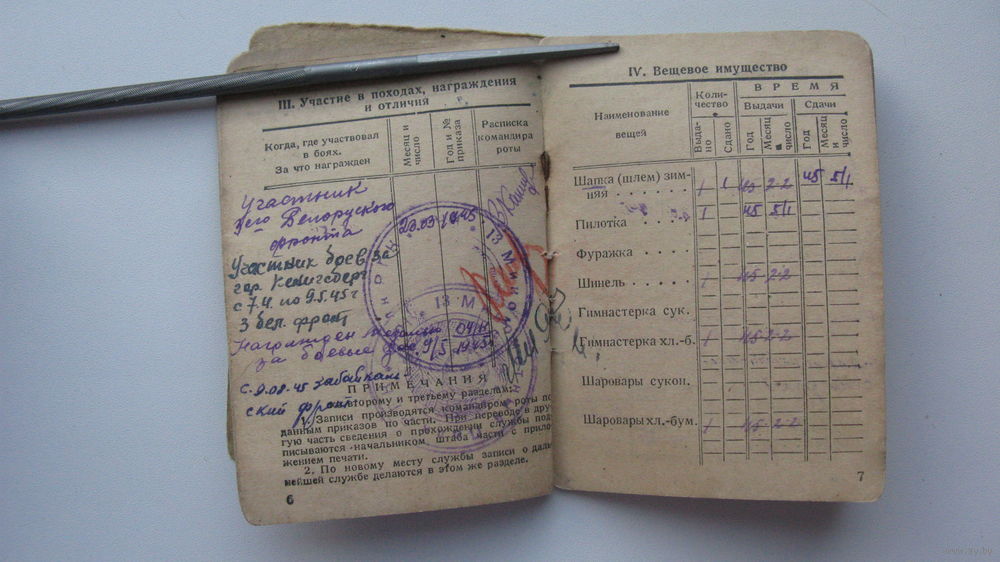 III. Участие в походах, награждения
и отличия
Когда, где участвовал
в боях.
За что награжден
Месяц и
число
Год и №
приказа
Расписка
командира
роты
Участник
3его Белоруского
фронта
23.03
1945
Участник боев за
гор. Кенигсберг
с 7.4. по 9.5.45 г
3 бел. фронт
Награжден медалью
за боевые
9/5
1945
с 9.08.45 забайкаль
ский фронт
ПРИМЕЧАНИЯ
второму и третьему разделам:
1. Записи производятся командиром роты по
данным приказов по части. При переводе в дру-
гую часть сведения о прохождении службы под-
писываются начальником штаба части с прило-
жением печати.
2. По новому месту службы записи о даль-
нейшей службе делаются в этом же разделе.
6
IV. Вещевое имущество
Наименование
вещей
Коли-
чество
Выда-
но
Сдано
ВРЕМЯ
Выдачи
Сдачи
Год
Месяц
и
число
Год
Месяц
и
число
Шапка (шлем) зим-
няя . . . . . . 1 1 43 2-2 45 5/1
Пилотка . . . . 1 45 5/1
Фуражка . . . .
Шинель . . . . 45 2-2
Гимнастерка сук.
Гимнастерка хл.-б. 1 45 2-2
Шаровары сукон.
Шаровары хл.-бум. 1 45 2-2
7
www.ay.by